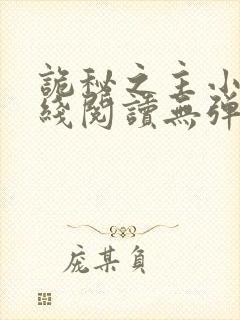 詭秘之主小
綫閱讀無彈
庞某負